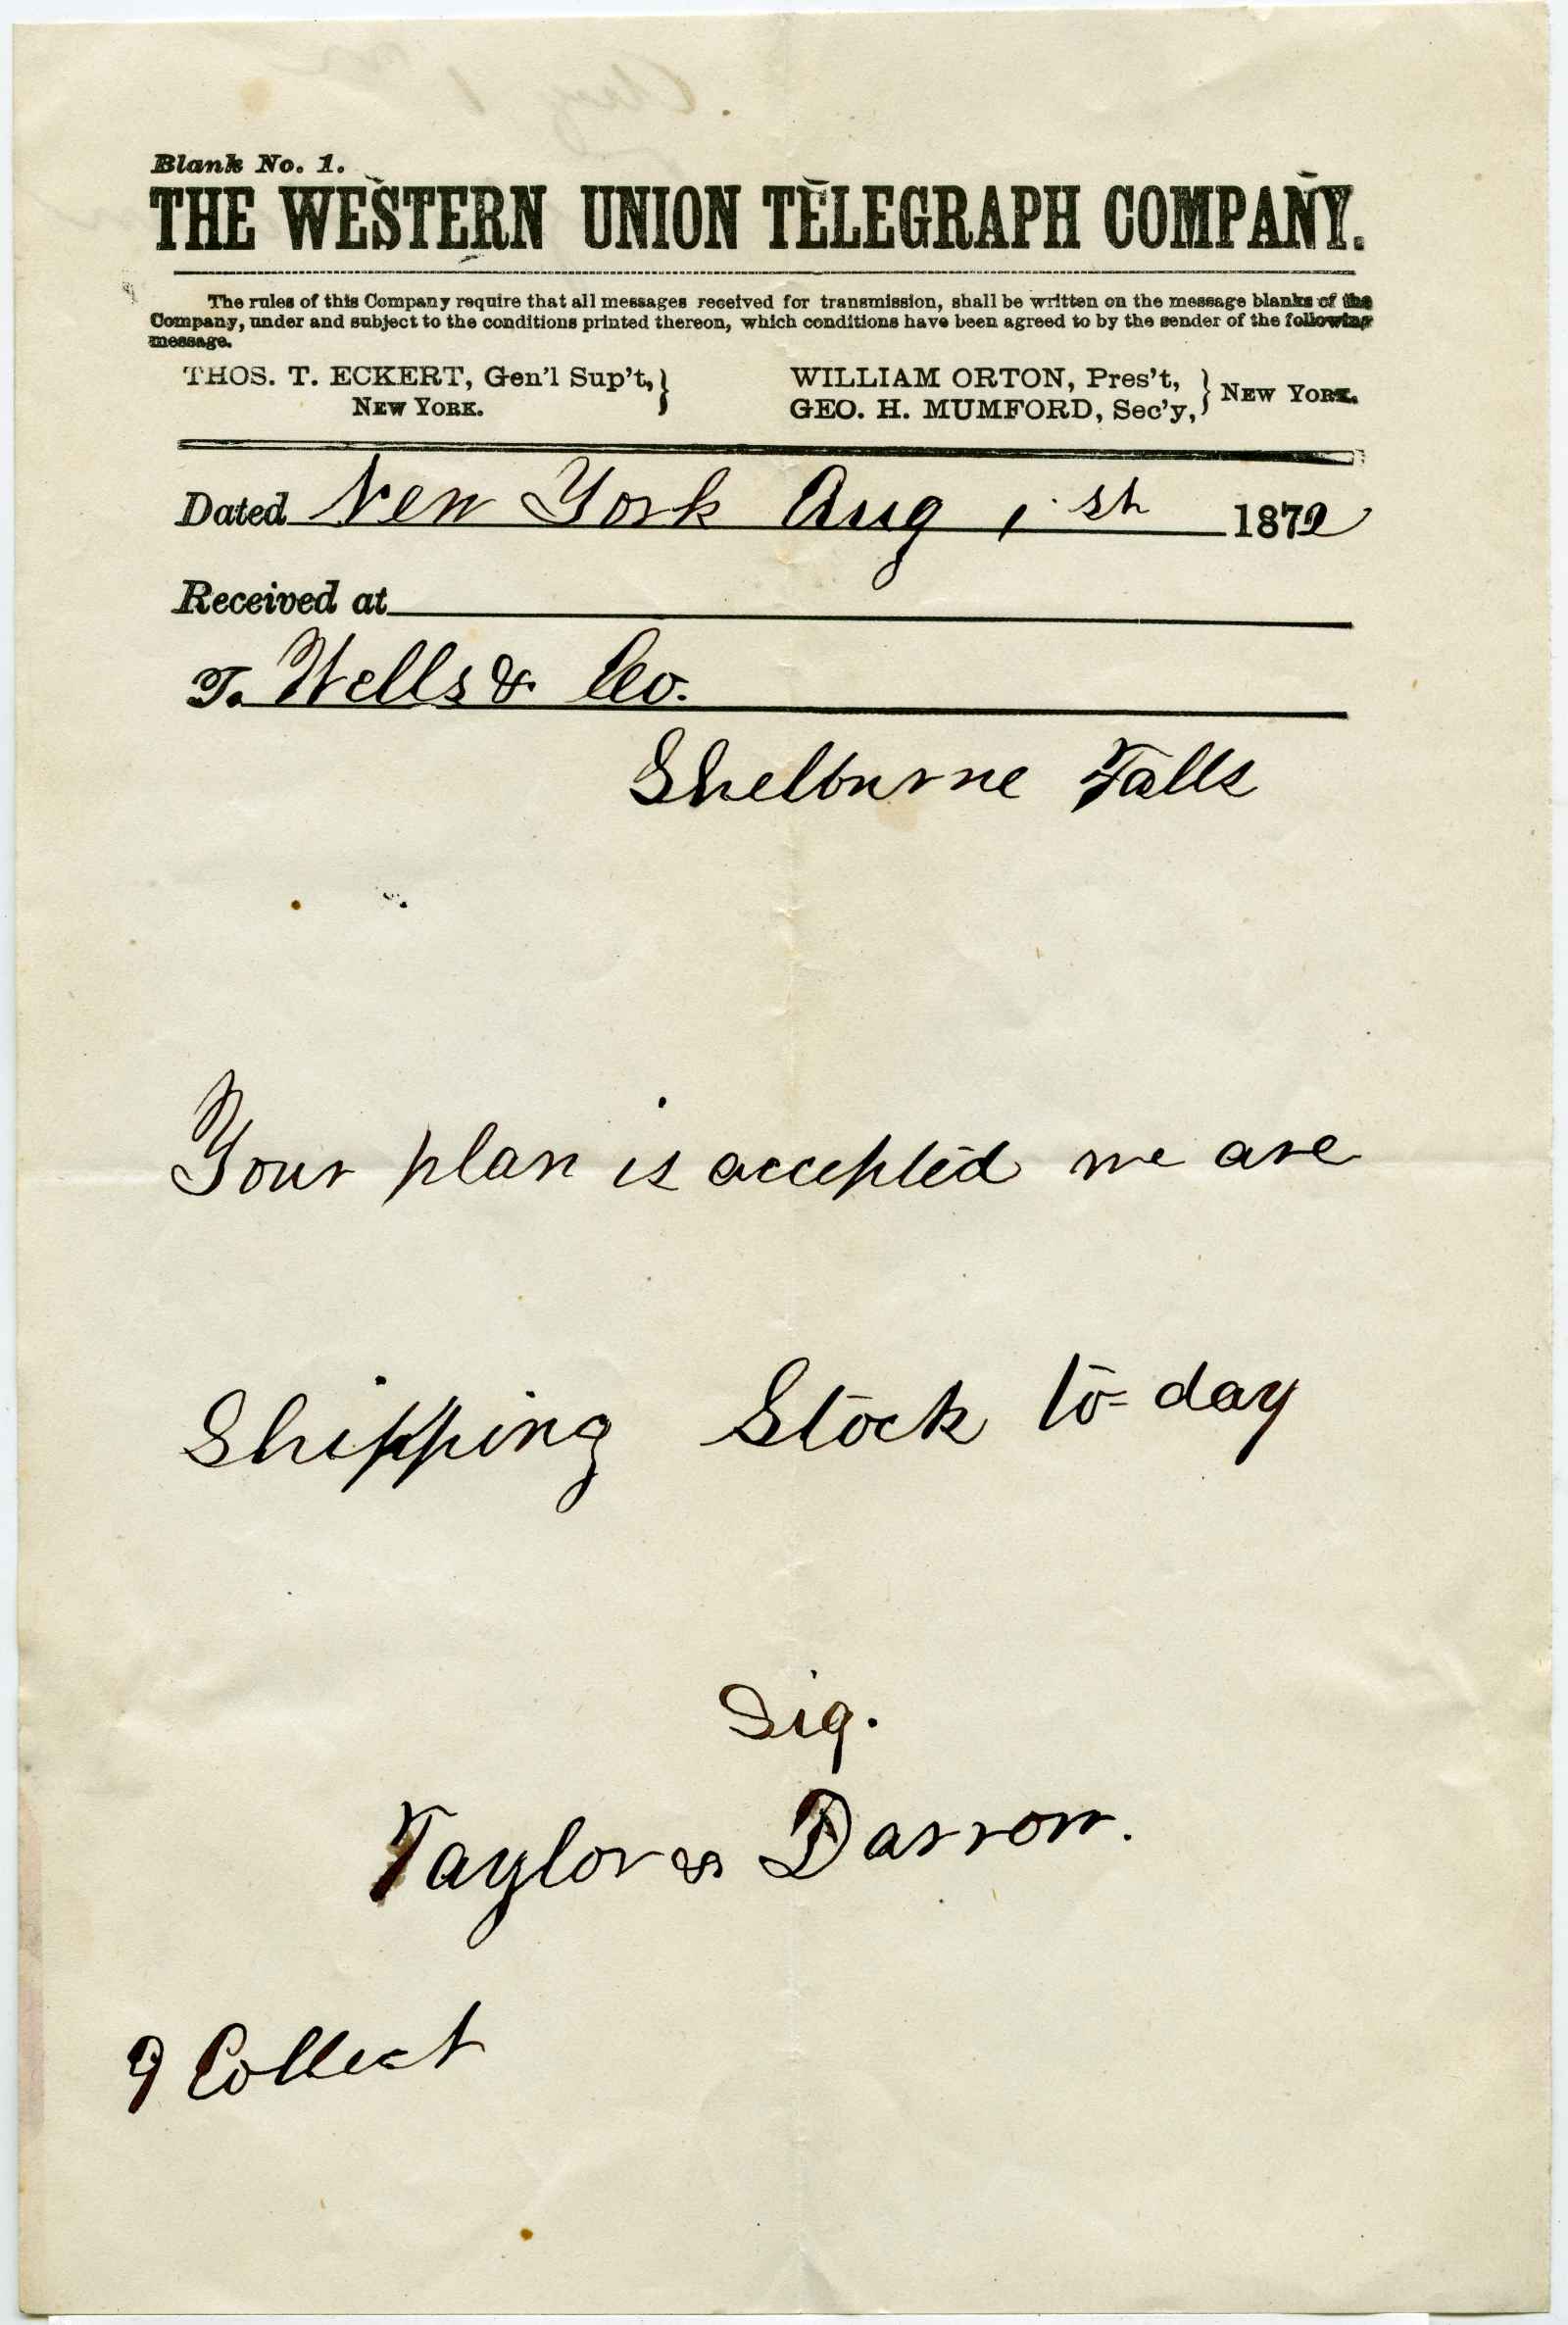 Blank No. 1.
THE WESTERN UNION TELEGRAPH COMPANY.
The rules of this Company require that all messages received for transmission, shall be written on the message blanks of the
Company, under and subject to the conditions printed thereon, which conditions have been agreed to by the sender of the following
message.
THOS. T. ECKERT, Gen'l Sup't, } WILLIAM ORTON, Pres't, } NEW YORK.
NEW YORK. GEO. H. MUMFORD, Sec'y,
Dated New York Aug 1st 1872
Received at
To Wells & Co.
Shelburne Falls
Your plan is accepted we are
Shipping Stock to-day
Sig.
Taylor & Darrow.
9 Collect